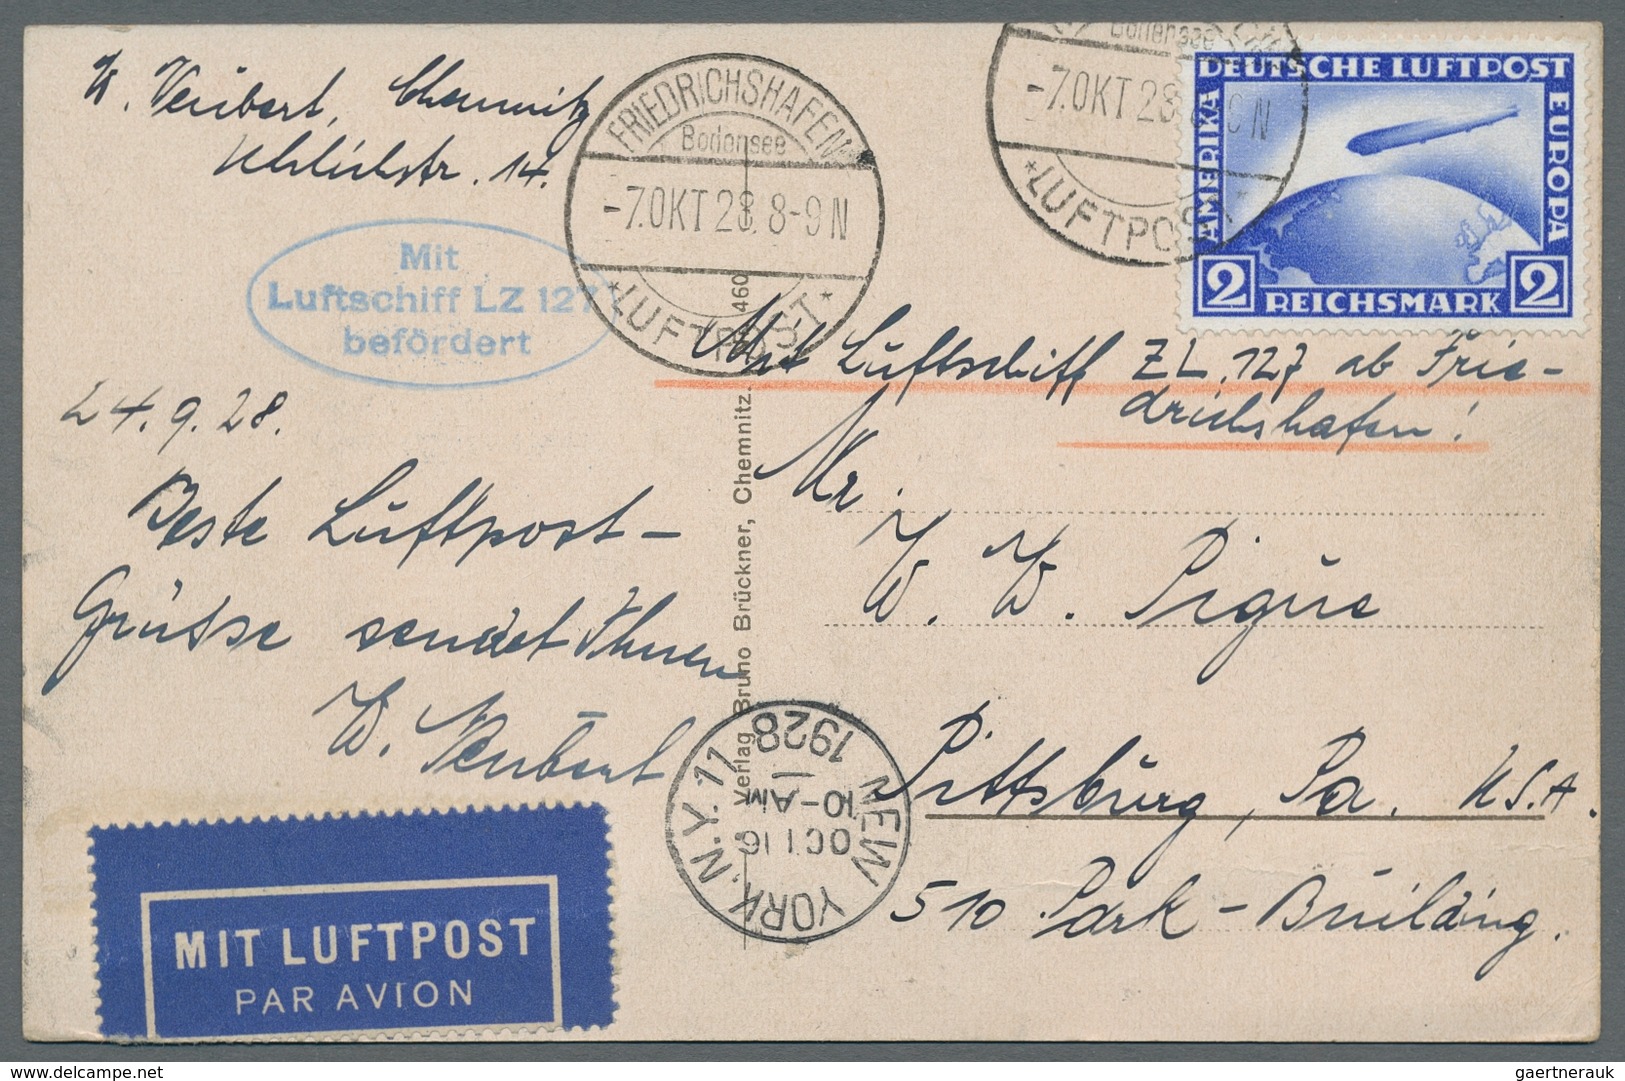 W. Neubert, Chemnitz
Uhlichstr. 14.
FRIEDRICHSHAFEN
Bodensee
-7.OKT 28. 8-9 N
* LUFTPOST *
Bodensee
-7.OKT 28. 8-9 N
* LUFTPOST
DEUTSCHE LUFTPOST
AMERIKA
EUROPA
2 REICHSMARK 2
Mit
Luftschiff LZ 127
befördert
Mit Luftschiff ZL. 127 ab Frie-
drichshafen!
24. 9. 28.
Beste Luftpost-
Grüsse sendet Ihnen
W. Neubert
Mr.
W. W. Pigue
Pittsburg, Pa. U.S.A.
510 Park-Building.
Verlag Bruno Brückner, Chemnitz.
460
NEW YORK, N.Y. 11
OCT 16
10-AM
1928
MIT LUFTPOST
PAR AVION
gaertnerauk